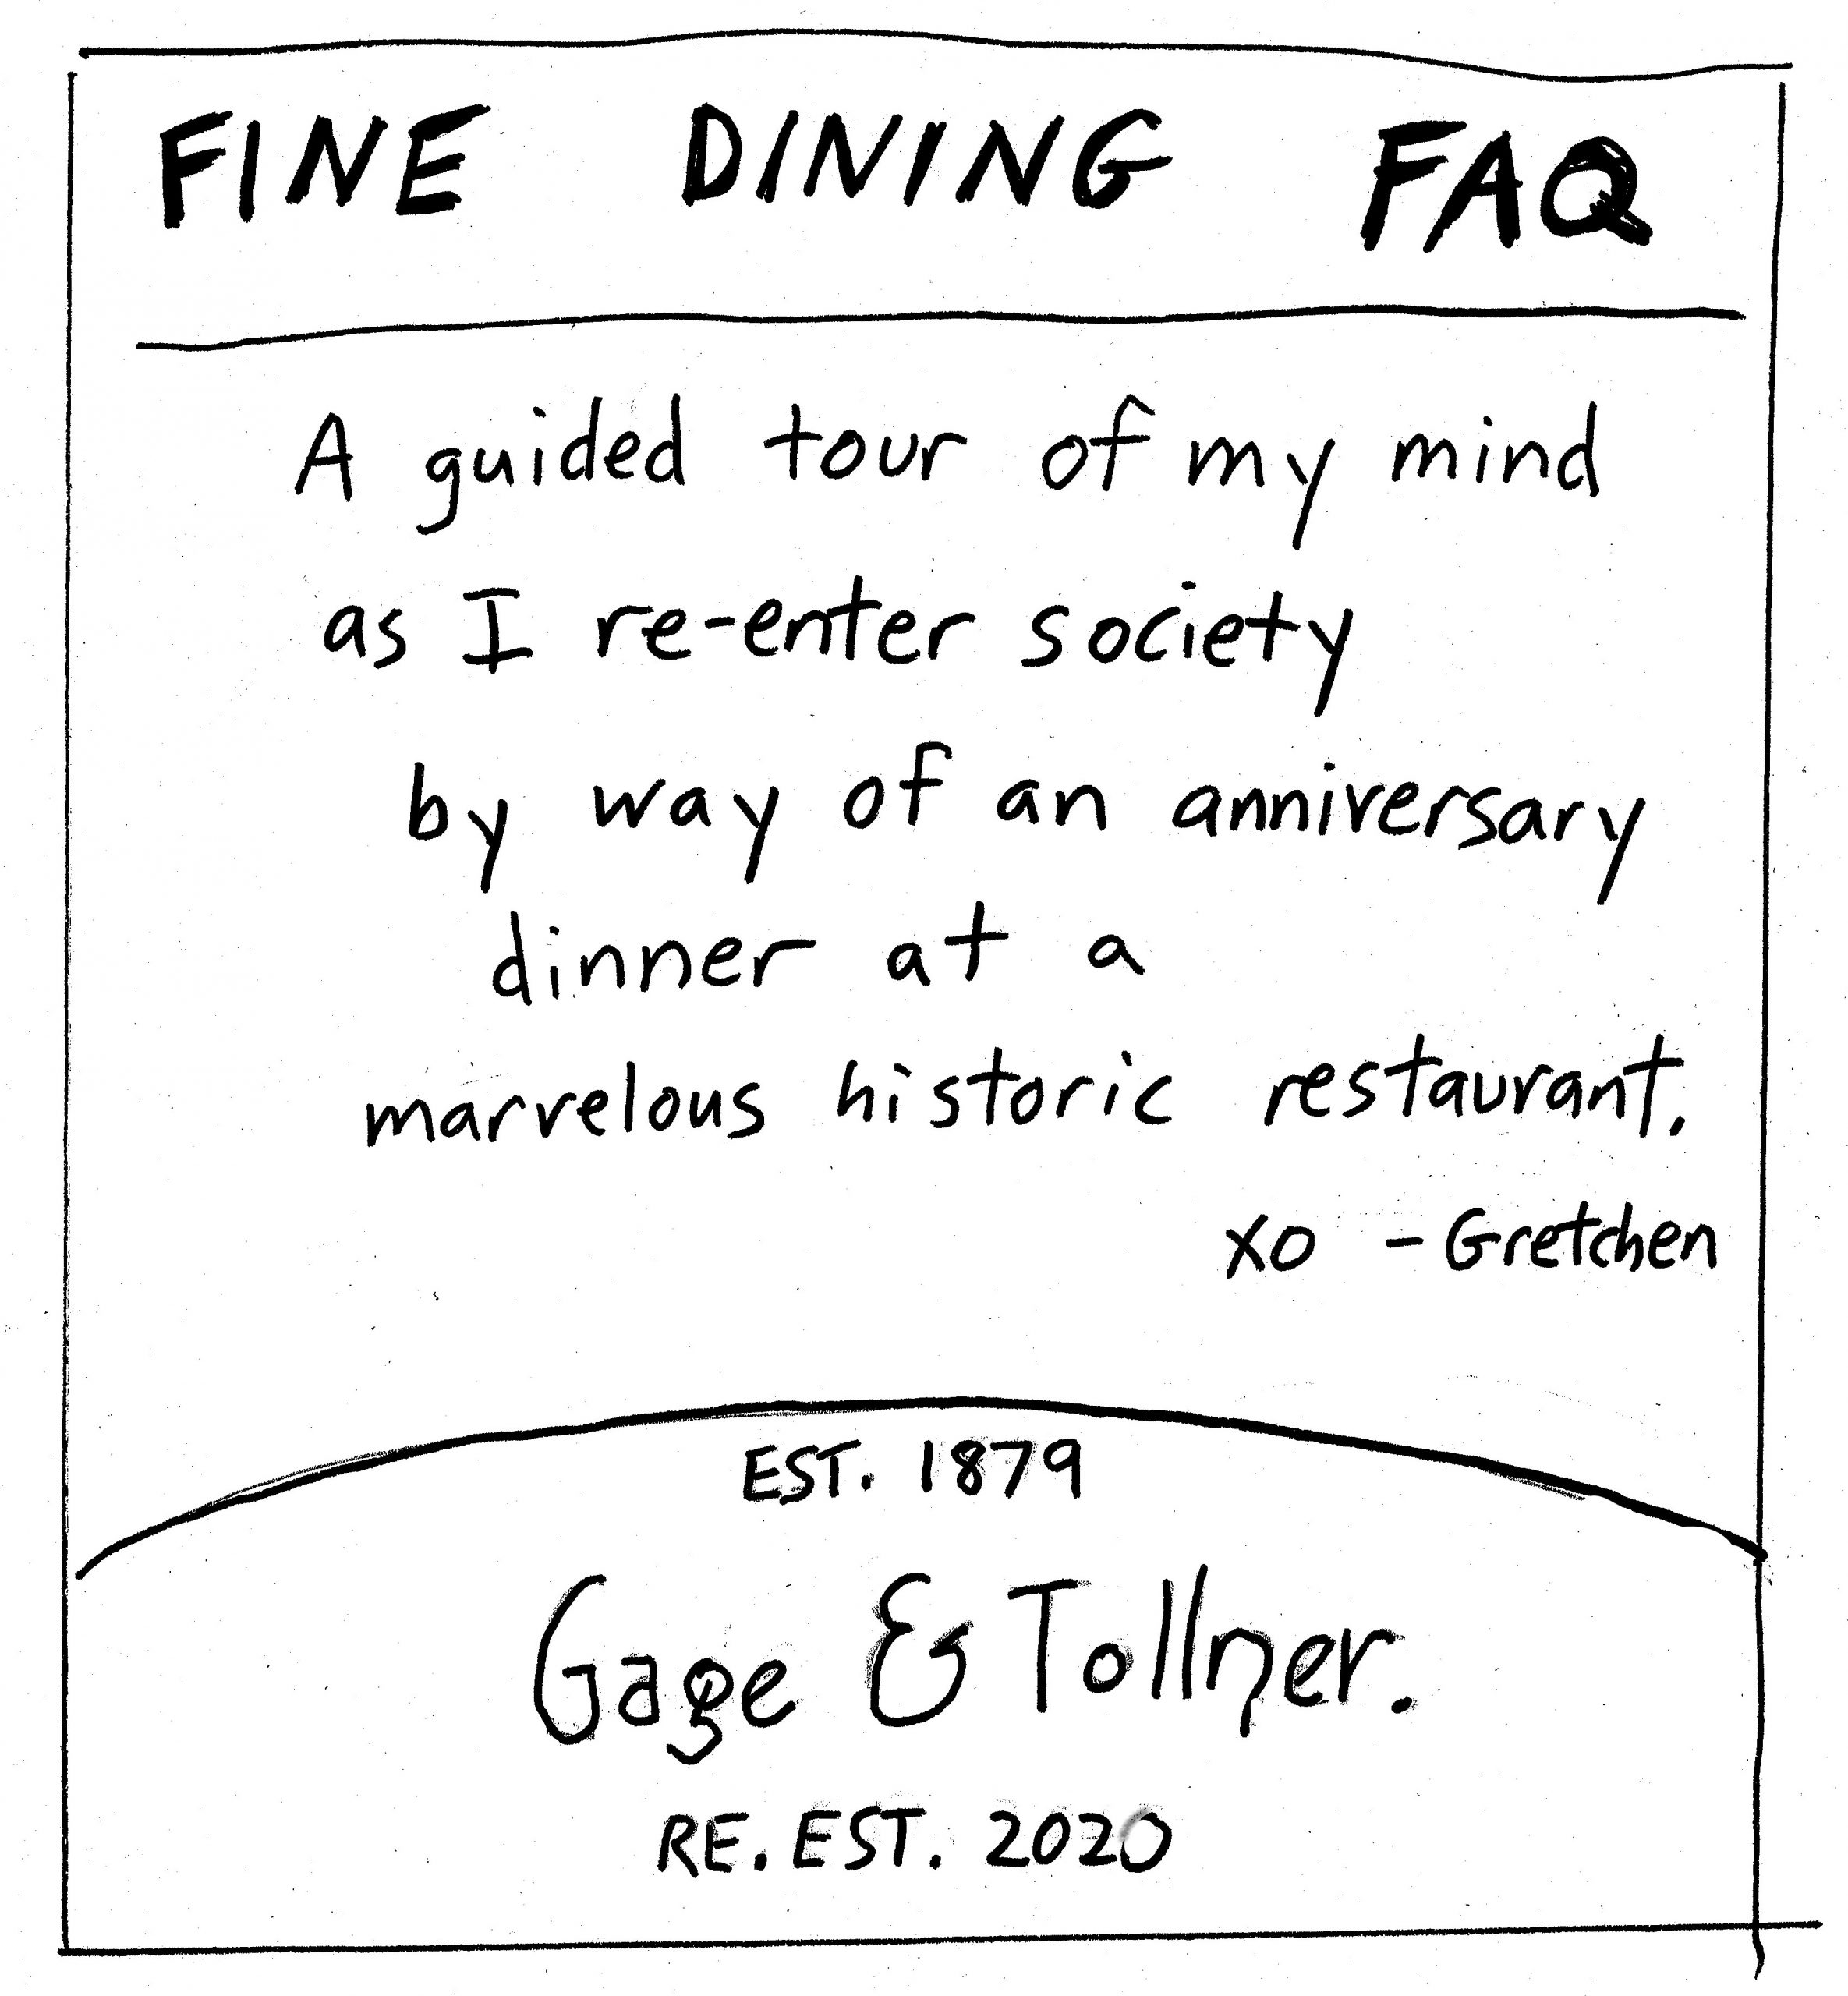 FINE DINING FAQ
A guided tour of my mind
as I re-enter society
by way of an anniversary
dinner at a
marvelous historic restaurant.
xo - Gretchen
EST. 1879
Gage & Tollner.
RE. EST. 2020